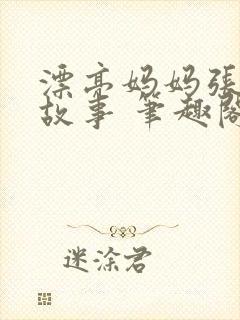 漂亮妈妈張
故事 笔趣阁
迷涂君